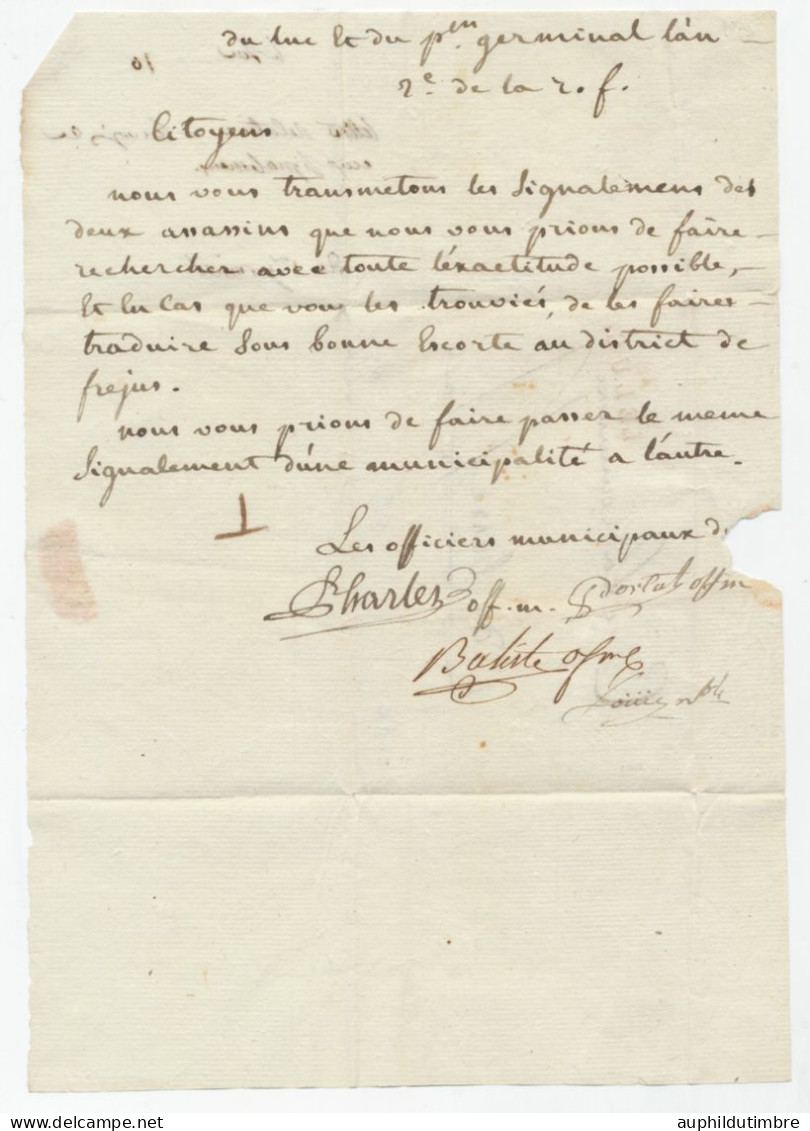 du luc Et du p.en germinal l'an
2.e de la r. f.
Citoyens
nous vous transmetons les Signalemens des
deux assassins que nous vous prions de faire
rechercher avec toute l'éxactitude possible,
Et En Cas que vous les trouviés, de les faires
traduire Sous bonne Escorte au district de
frejus.
nous vous prions de faire passer le meme
Signalement d'une municipalité a l'autre.
Les officiers municipaux d
Charles off. m. offm
Batiste
auphildutimbre.com